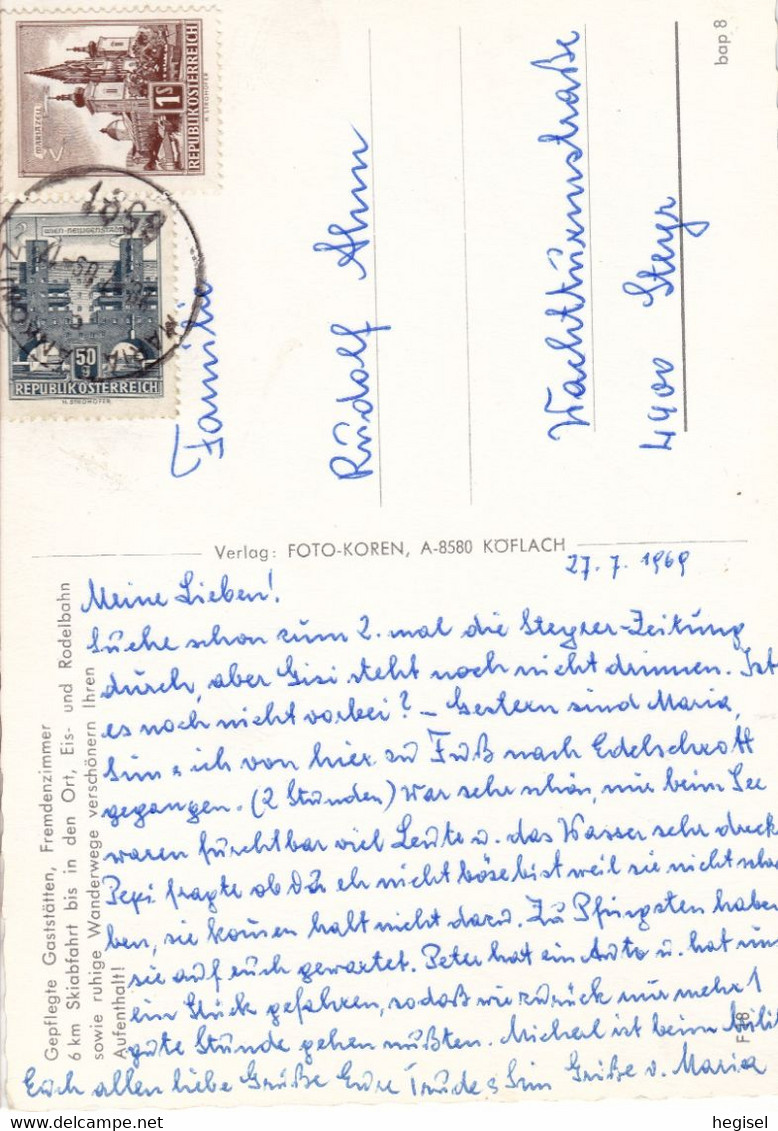 MARIAZELL
1S
REPUBLIK ÖSTERREICH
H. STROHOFER
WIEN-HEILIGENSTADT
50 g
REPUBLIK ÖSTERREICH
H. STROHOFER
MARIA LANKOWITZ
bap 8
Familie
Rudolf Ahm
Wachtturmstraße
4400 Steyr
Verlag: FOTO-KOREN, A-8580 KÖFLACH
Gepflegte Gaststätten, Fremdenzimmer
6 km Skiabfahrt bis in den Ort, Eis- und Rodelbahn
sowie ruhige Wanderwege verschönern Ihren
Aufenthalt!
27.7.1969
Meine Lieben!
Suche schon zum 2. mal die Steyrer-Zeitung
durch, aber Gisi steht noch nicht drinnen. Ist
es noch nicht vorbei? – Gestern sind Maria,
Sim & ich von hier zu Fuß nach Edelschrott
gegangen. (2 Stunden) War sehr schön, nur beim See
waren furchtbar viel Leute u. das Wasser sehr dreck
Pepi fragte ob Du eh nicht böse bist weil sie nicht schr
ben, sie kommen halt nicht dazu. Zu Pfingsten haben
sie auf euch gewartet. Peter hat ein Auto u. hat uns
ein Stück gefahren, sodaß wir zurück nur mehr 1
gute Stunde gehen mußten. Micherl ist beim Milit
Euch allen liebe Grüße Eure Trude & Sim Grüße v. Maria